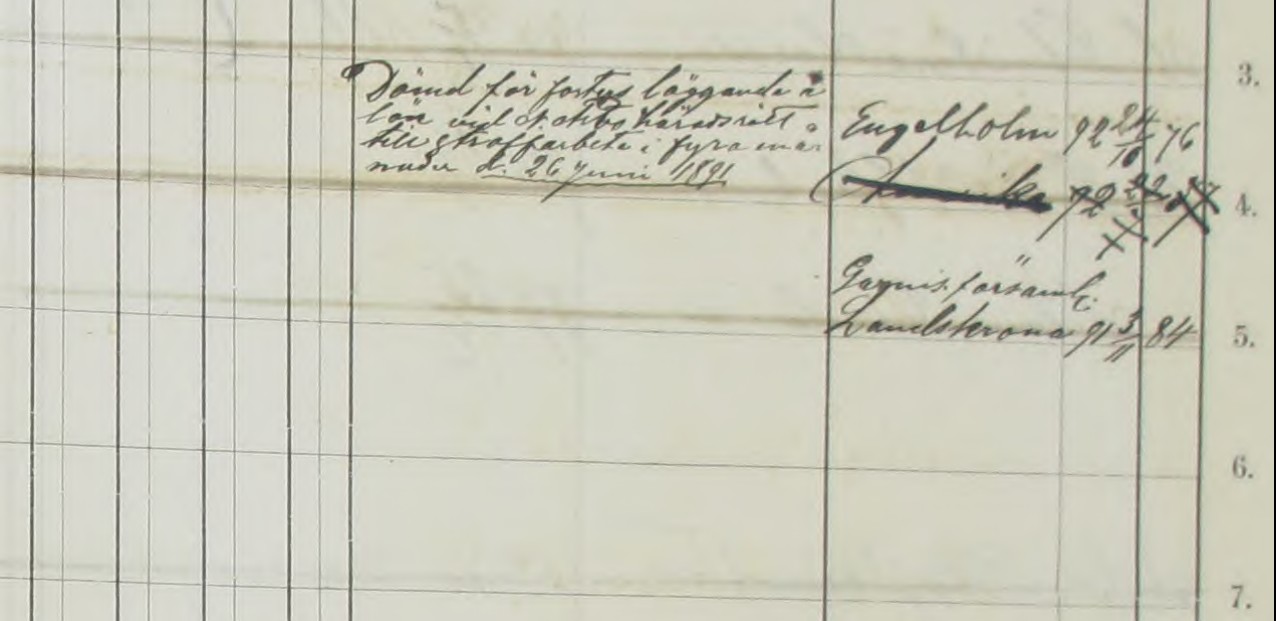 3.
Dömd för fosters läggande å
lön vid N. Åsbo häradsrätt
till straffarbete i fyra må-
nader d. 26 Juni 1891
Engelholm 92 24/10 76
4.
Amerika 92
Garnis. församl.
Landskrona 91 3/11 84
5.
6.
7.